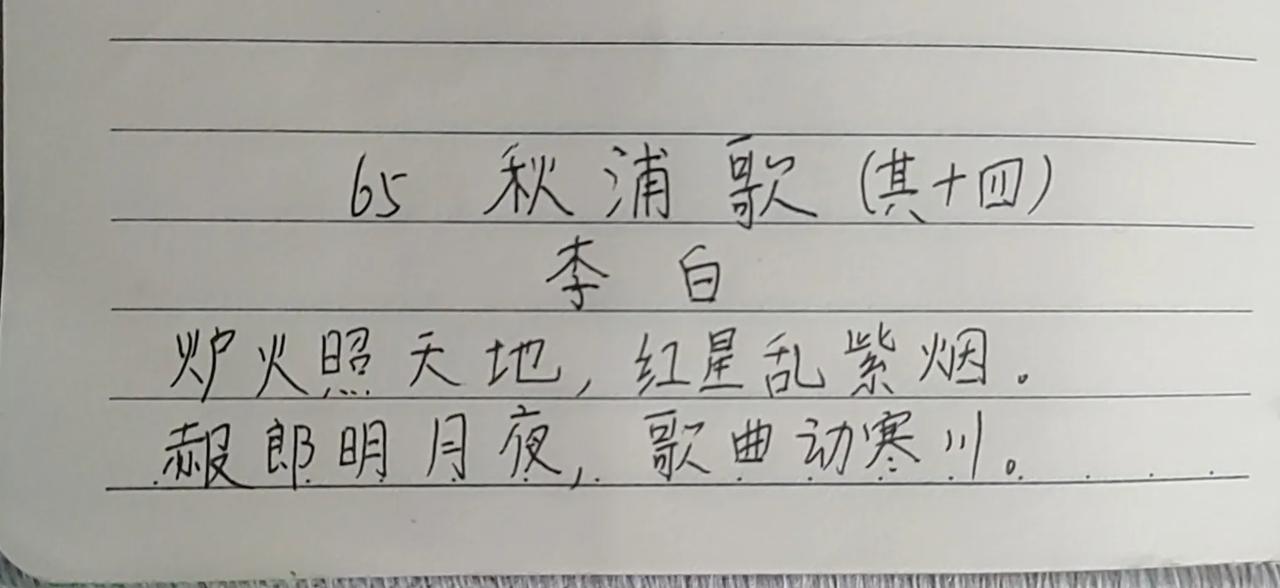 65 秋浦歌(其十四)
李白
炉火照天地,红星乱紫烟。
赧郎明月夜,歌曲动寒川。